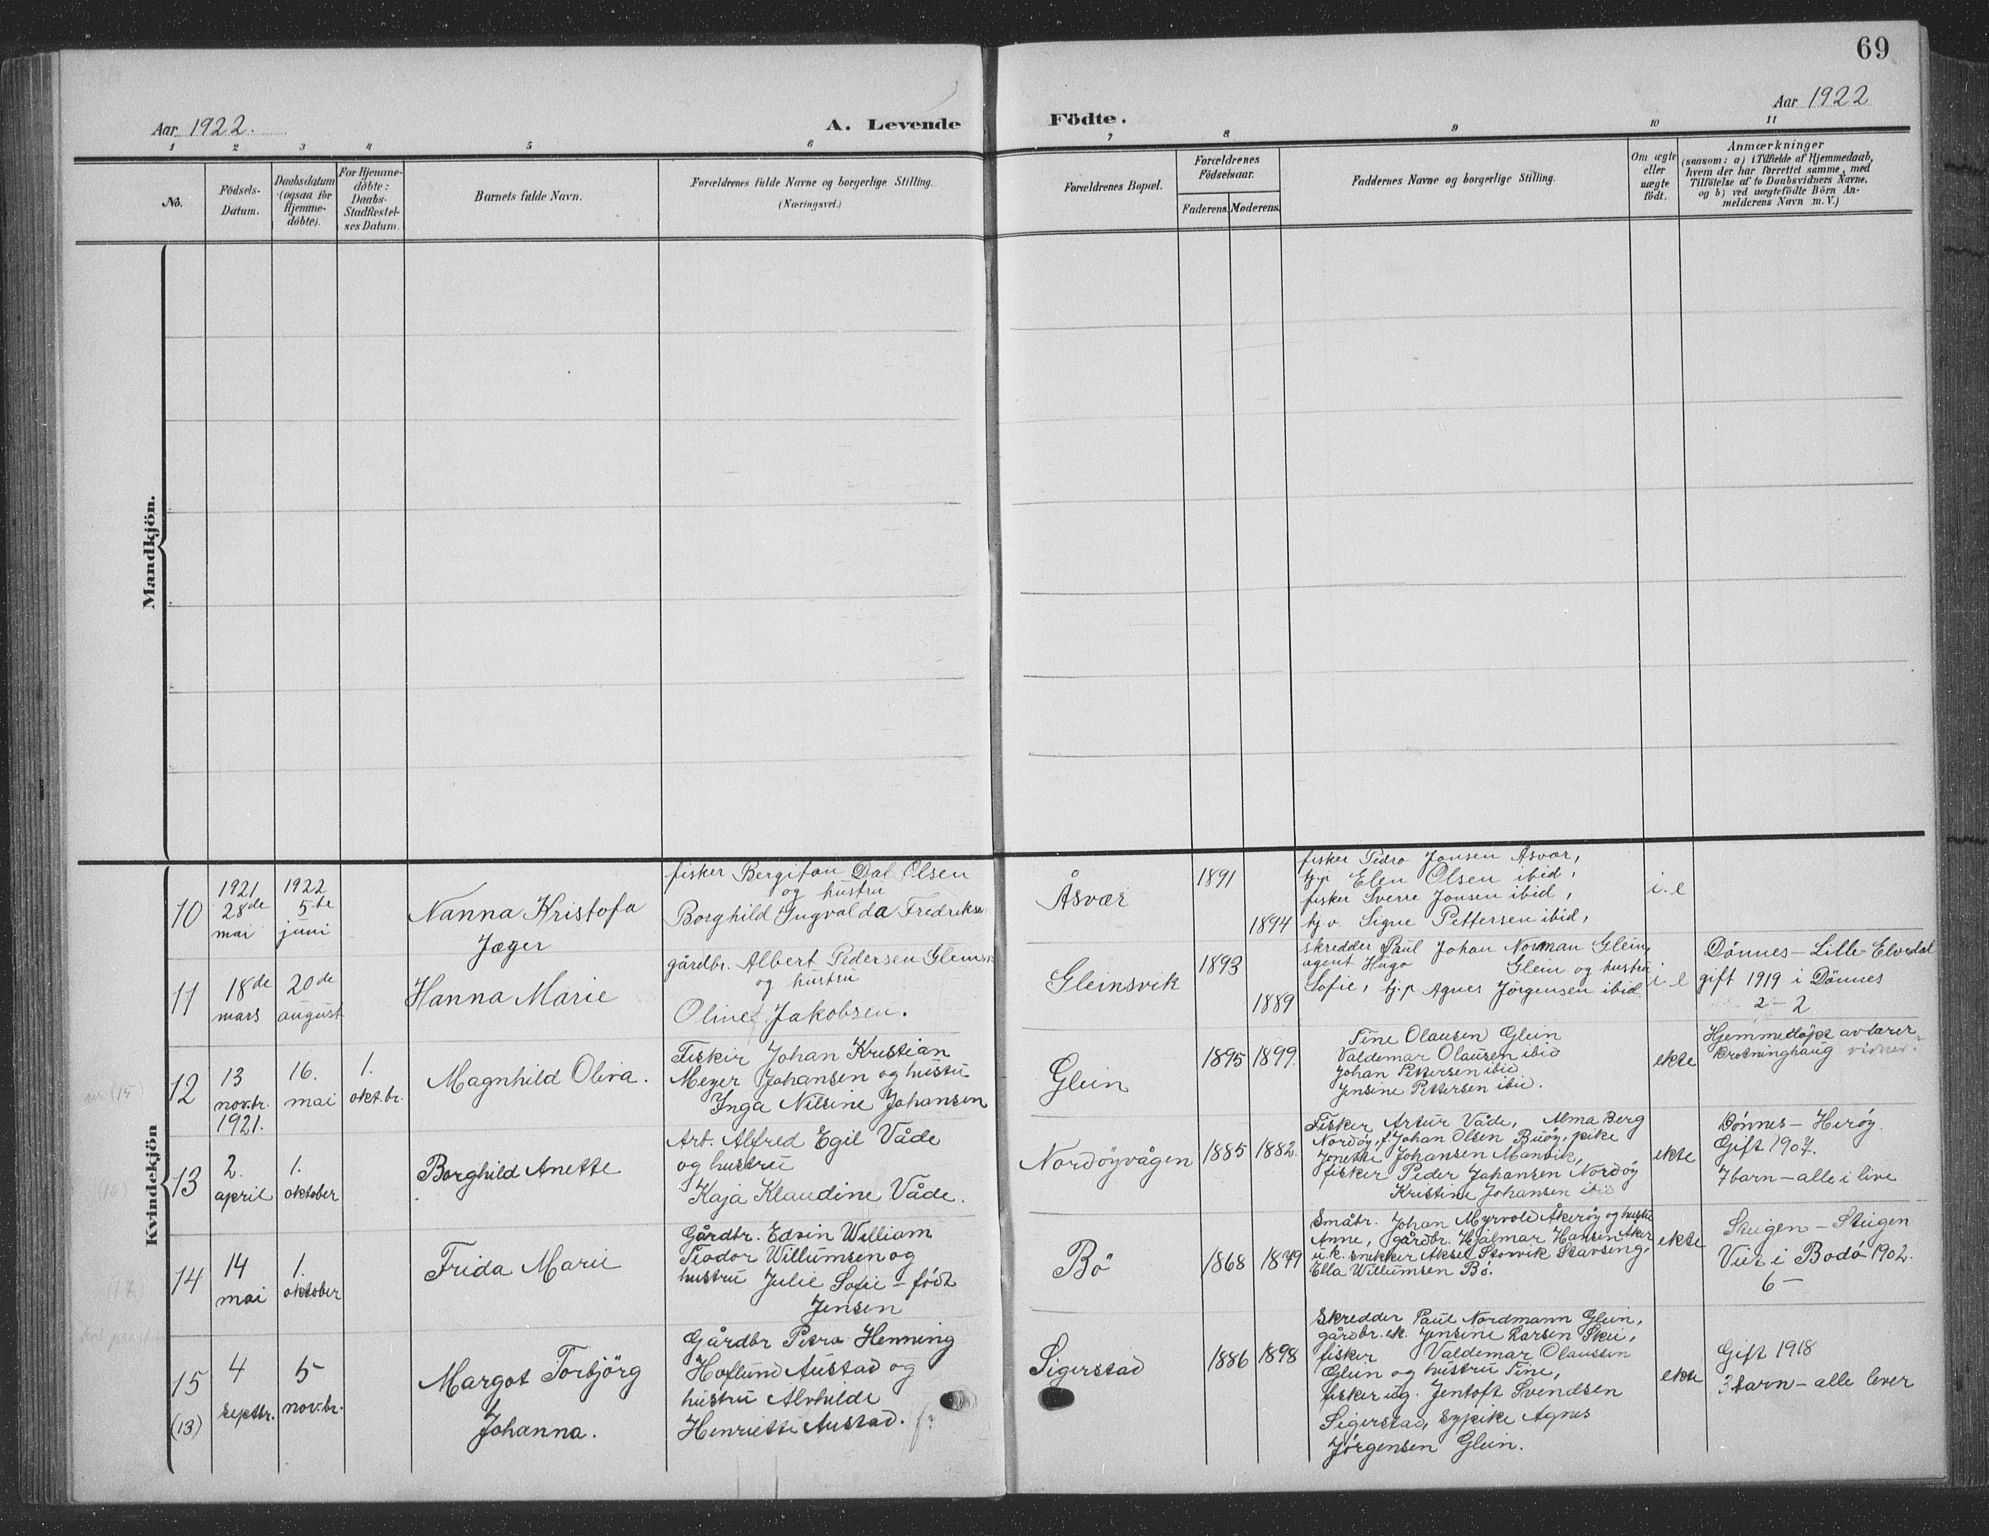 69
Aar 1922.
A. Levende
Födte.
Aar 1922
1 2 3 4 5 6 7 8 9 10 11
No.
Födsels-
Datum.
Daabsdatum
(ogsaa for
Hjemme-
döbte).
For Hjemme-
döbte:
Daabs-
Stadfæstel-
ses Datum.
Barnets fulde Navn.
Forældrenes fulde Navne og borgerlige Stilling.
(Næringsvei.)
Forældrenes Bopæl.
Forældrenes
Födselsaar.
Faderens. Moderens.
Faddernes Navne og borgerlige Stilling.
Om ægte
eller
uægte
födt.
Anmærkninger
(saasom: a) i Tilfælde af Hjemmedaab,
hvem der har forrettet samme, med
Tilföielse af to Daabsvidners Navne,
og b) ved uægtefödte Börn An-
melderens Navn m. V.)
Mandkjön.
Kvindekjön
10
1921
28de
mai
1922
5te
juni
Nanna Kristofa
Jæger
fisker Bergiton Dal Olsen
og hustru
Borghild Ingvalda Fredrikse
Åsvær
1891
1894
fisker Pedro Jonsen Åsvær,
tjp Elen Olsen ibid,
fisker Sverre Jonsen ibid,
hv Signe Pettersen ibid,
i.e
11
18de
mars
20de
august
Hanna Marie
gårdbr. Albert Pedersen Gleinsv
og hustru
Oline Jakobsen.
Gleinsvik
1893
1889
skredder Paul Johan Norman Glein,
agent Hugo Glein og hustru
Sofie, tjp Agnes Jørgensen ibid
i e
Dønnes – Lille-Elvedal
gift 1919 i Dønnes
2 – 2
nr (15)
12
13
nov.br.
1921.
16.
mai
1.
okt.br.
Magnhild Oliva.
Fisker Johan Kristian
Meyer Johansen og hustru
Inga Nilsine Johansen
Glein
1895 1899.
Tine Olausen Glein
Valdemar Olausen ibid
Johan Pettersen ibid
Jensine Pettersen ibid.
ekte
Hjemmedøpt av lærer
KroMninghaug
13
2.
april
1.
oktober
Borghild Anette
Arb. Alfred Egil Våde
og hustru
Kaja Klaudine Våde.
Nordøyvågen
1885 1882.
Fisker Artur Våde, Alma Berg
Nordøy, f. Johan Olsen Buøy, pike
Jonette Johansen Manvik,
fisker Peder Johansen Nordøy
Kristine Johansen ibid
ekte
Dønnes – Herøy.
Gift 1907.
7 barn – alle i live
(17)
14
14
mai
1.
oktober
Frida Marie
Gårdbr. Edvin William
Teodor Willumsen og
hustru Julie Sofie – født
Jensen
Bø
1868 1879
Småbr. Johan Myrvold Åkerøy og hustru
Anne, gårdbr. Hjalmar Hansen Åker
u.k. snikker Aksel Storvik Stavseng,
Ella Willumsen Bø.
ekte
Steigen – Steigen
Viet i Bodø 1902.
6 –
15
(13)
4
septbr.
5
nov.br.
Margot Torbjörg
Johanna.
Gårdbr Petra Henning
Hoflund Austad og
hustru Alvhilde
Henriette Austad. f?
Sigerstad
1886 1898
Skredder Paul Nordmann Glein,
gårdbr. ek. Jensine Larsen Skei,
fisker Valdemar Olaussen
Glein og hustru Tine,
fisker ug. Jentoft Svendsen
Sigerstad, sypike Agnes
Jørgensen Glein.
ekte
Gift 1918
3 barn – alle lever